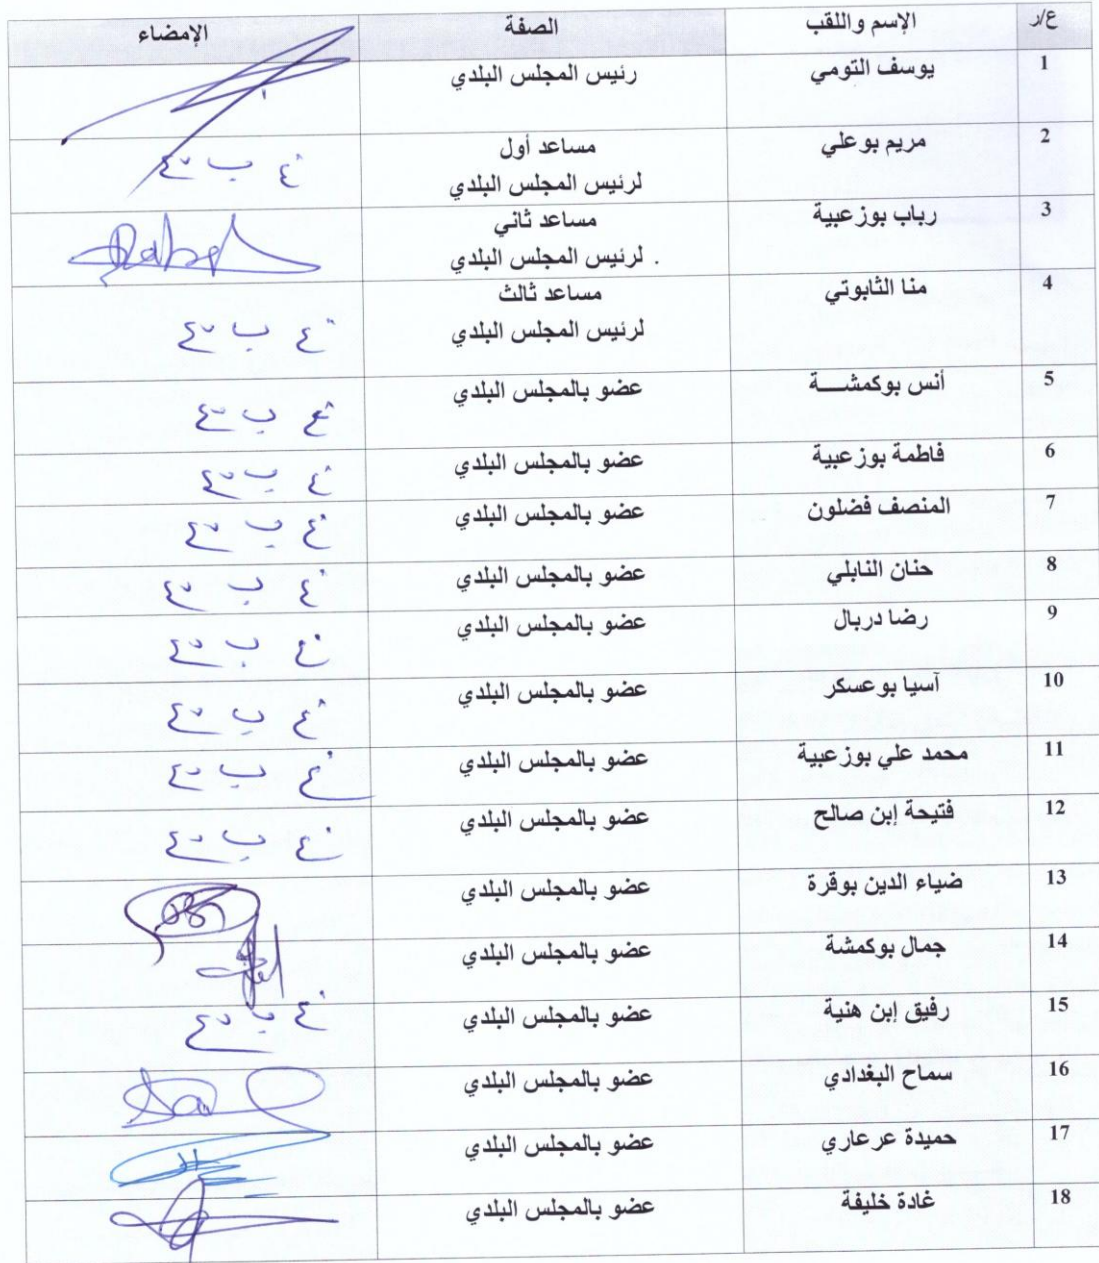 ع/ر الإسم واللقب الصفة الإمضاء
1 يوسف التومي رئيس المجلس البلدي
2 مريم بوعلي مساعد أول
لرئيس المجلس البلدي غ ب ع
3 رباب بوزعبية مساعد ثاني
. لرئيس المجلس البلدي
4 منا الثابوتي مساعد ثالث
لرئيس المجلس البلدي غ ب ع
5 أنس بوكمشـــة عضو بالمجلس البلدي غ ب ع
6 فاطمة بوزعبية عضو بالمجلس البلدي غ ب ع
7 المنصف فضلون عضو بالمجلس البلدي غ ب ع
8 حنان النابلي عضو بالمجلس البلدي غ ب ع
9 رضا دربال عضو بالمجلس البلدي غ ب ع
10 آسيا بوعسكر عضو بالمجلس البلدي غ ب ع
11 محمد علي بوزعبية عضو بالمجلس البلدي غ ب ع
12 فتيحة إبن صالح عضو بالمجلس البلدي غ ب ع
13 ضياء الدين بوقرة عضو بالمجلس البلدي
14 جمال بوكمشة عضو بالمجلس البلدي
15 رفيق إبن هنية عضو بالمجلس البلدي غ ب ع
16 سماح البغدادي عضو بالمجلس البلدي
17 حميدة عرعاري عضو بالمجلس البلدي
18 غادة خليفة عضو بالمجلس البلدي